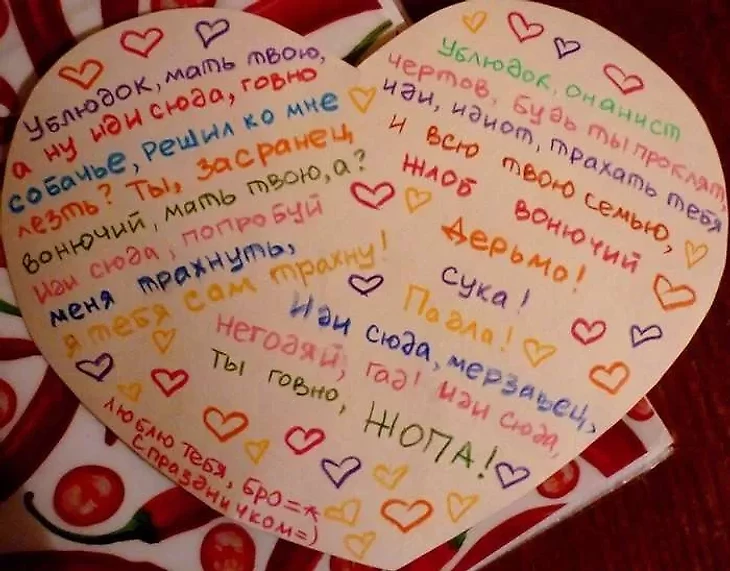 Ублюдок, мать твою,
а ну иди сюда, говно
собачье, решил ко мне
лезть? Ты, засранец
вонючий, мать твою, а?
Иди сюда, попробуй
меня трахнуть,
я тебя сам трахну!
Ублюдок, онанист
чертов, будь ты проклят,
иди, идиот, трахать тебя
и всю твою семью,
жлоб вонючий
дерьмо!
сука!
Падла!
Иди сюда, мерзавец,
негодяй, гад! Иди сюда,
ты говно, ЖОПА!
люблю тебя, бро=*
С праздничком=)